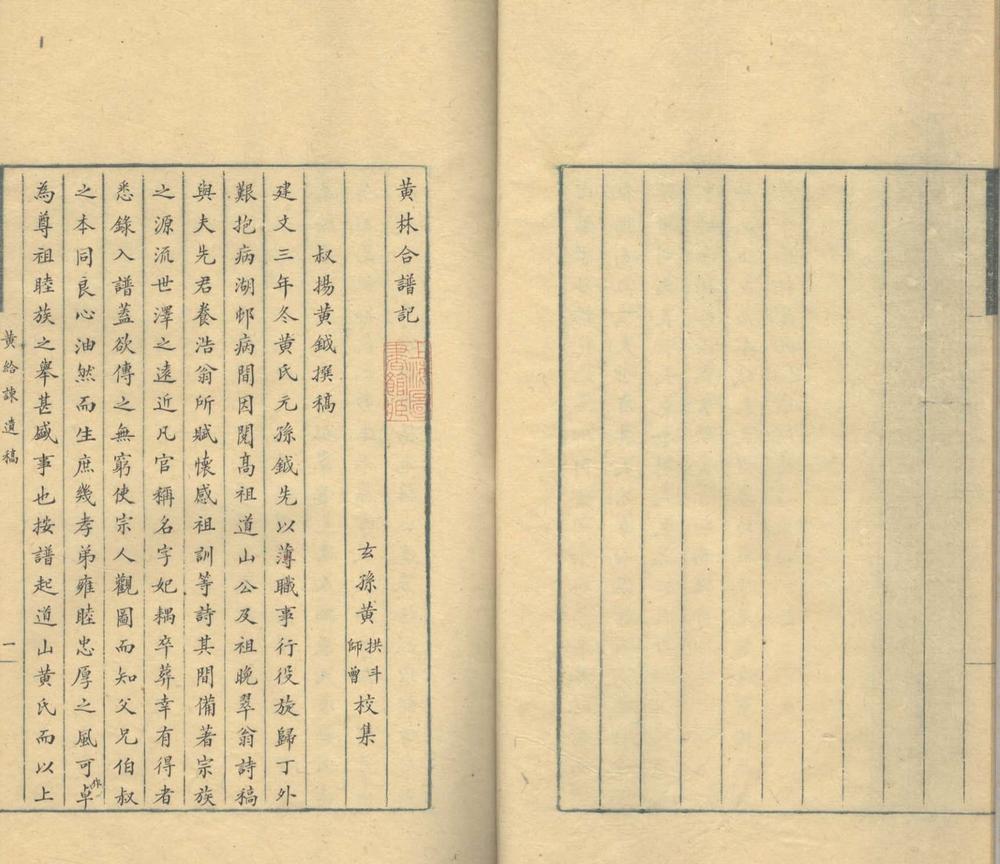 黄林合譜記
玄孫黄拱斗師曾校集
叔揚黄鉞撰稿
建文三年冬黄氏元孫鉞先以薄職事行役旋歸丁外
艱抱病湖邨病間因閲髙祖道山公及祖晚翠翁詩稿
與夫先君養浩翁所賦懷感祖訓等詩其間備著宗族
之源流世澤之遠近凡官稱名字妃耦卒葬幸有得者
悉錄入譜蓋欲傳之無窮使宗人觀圖而知父兄伯叔
之本同良心油然而生庶幾孝弟雍睦忠厚之風可卓
為尊祖睦族之舉甚盛事也按譜起道山黄氏而以上
黄給諫遺稿
一